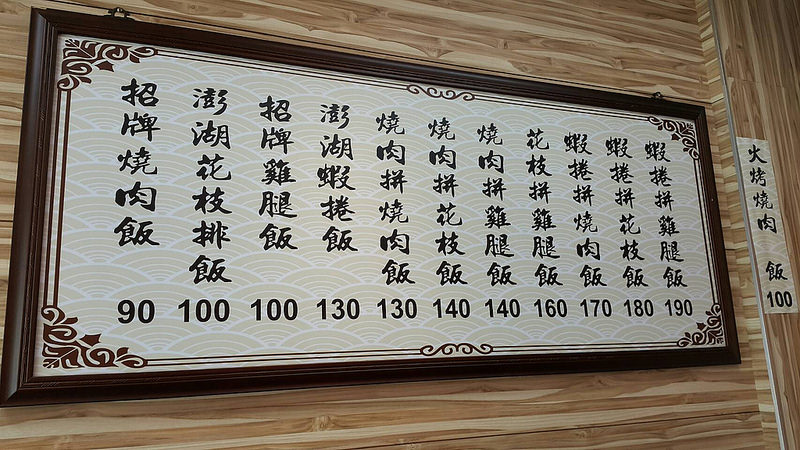 招牌燒肉飯
90
澎湖花枝排飯
100
招牌雞腿飯
100
澎湖蝦捲飯
130
燒肉拼燒肉飯
130
燒肉拼花枝飯
140
燒肉拼雞腿飯
140
花枝拼雞腿飯
160
蝦捲拼燒肉飯
170
蝦捲拼花枝飯
180
蝦捲拼雞腿飯
190
火烤燒肉 飯
100